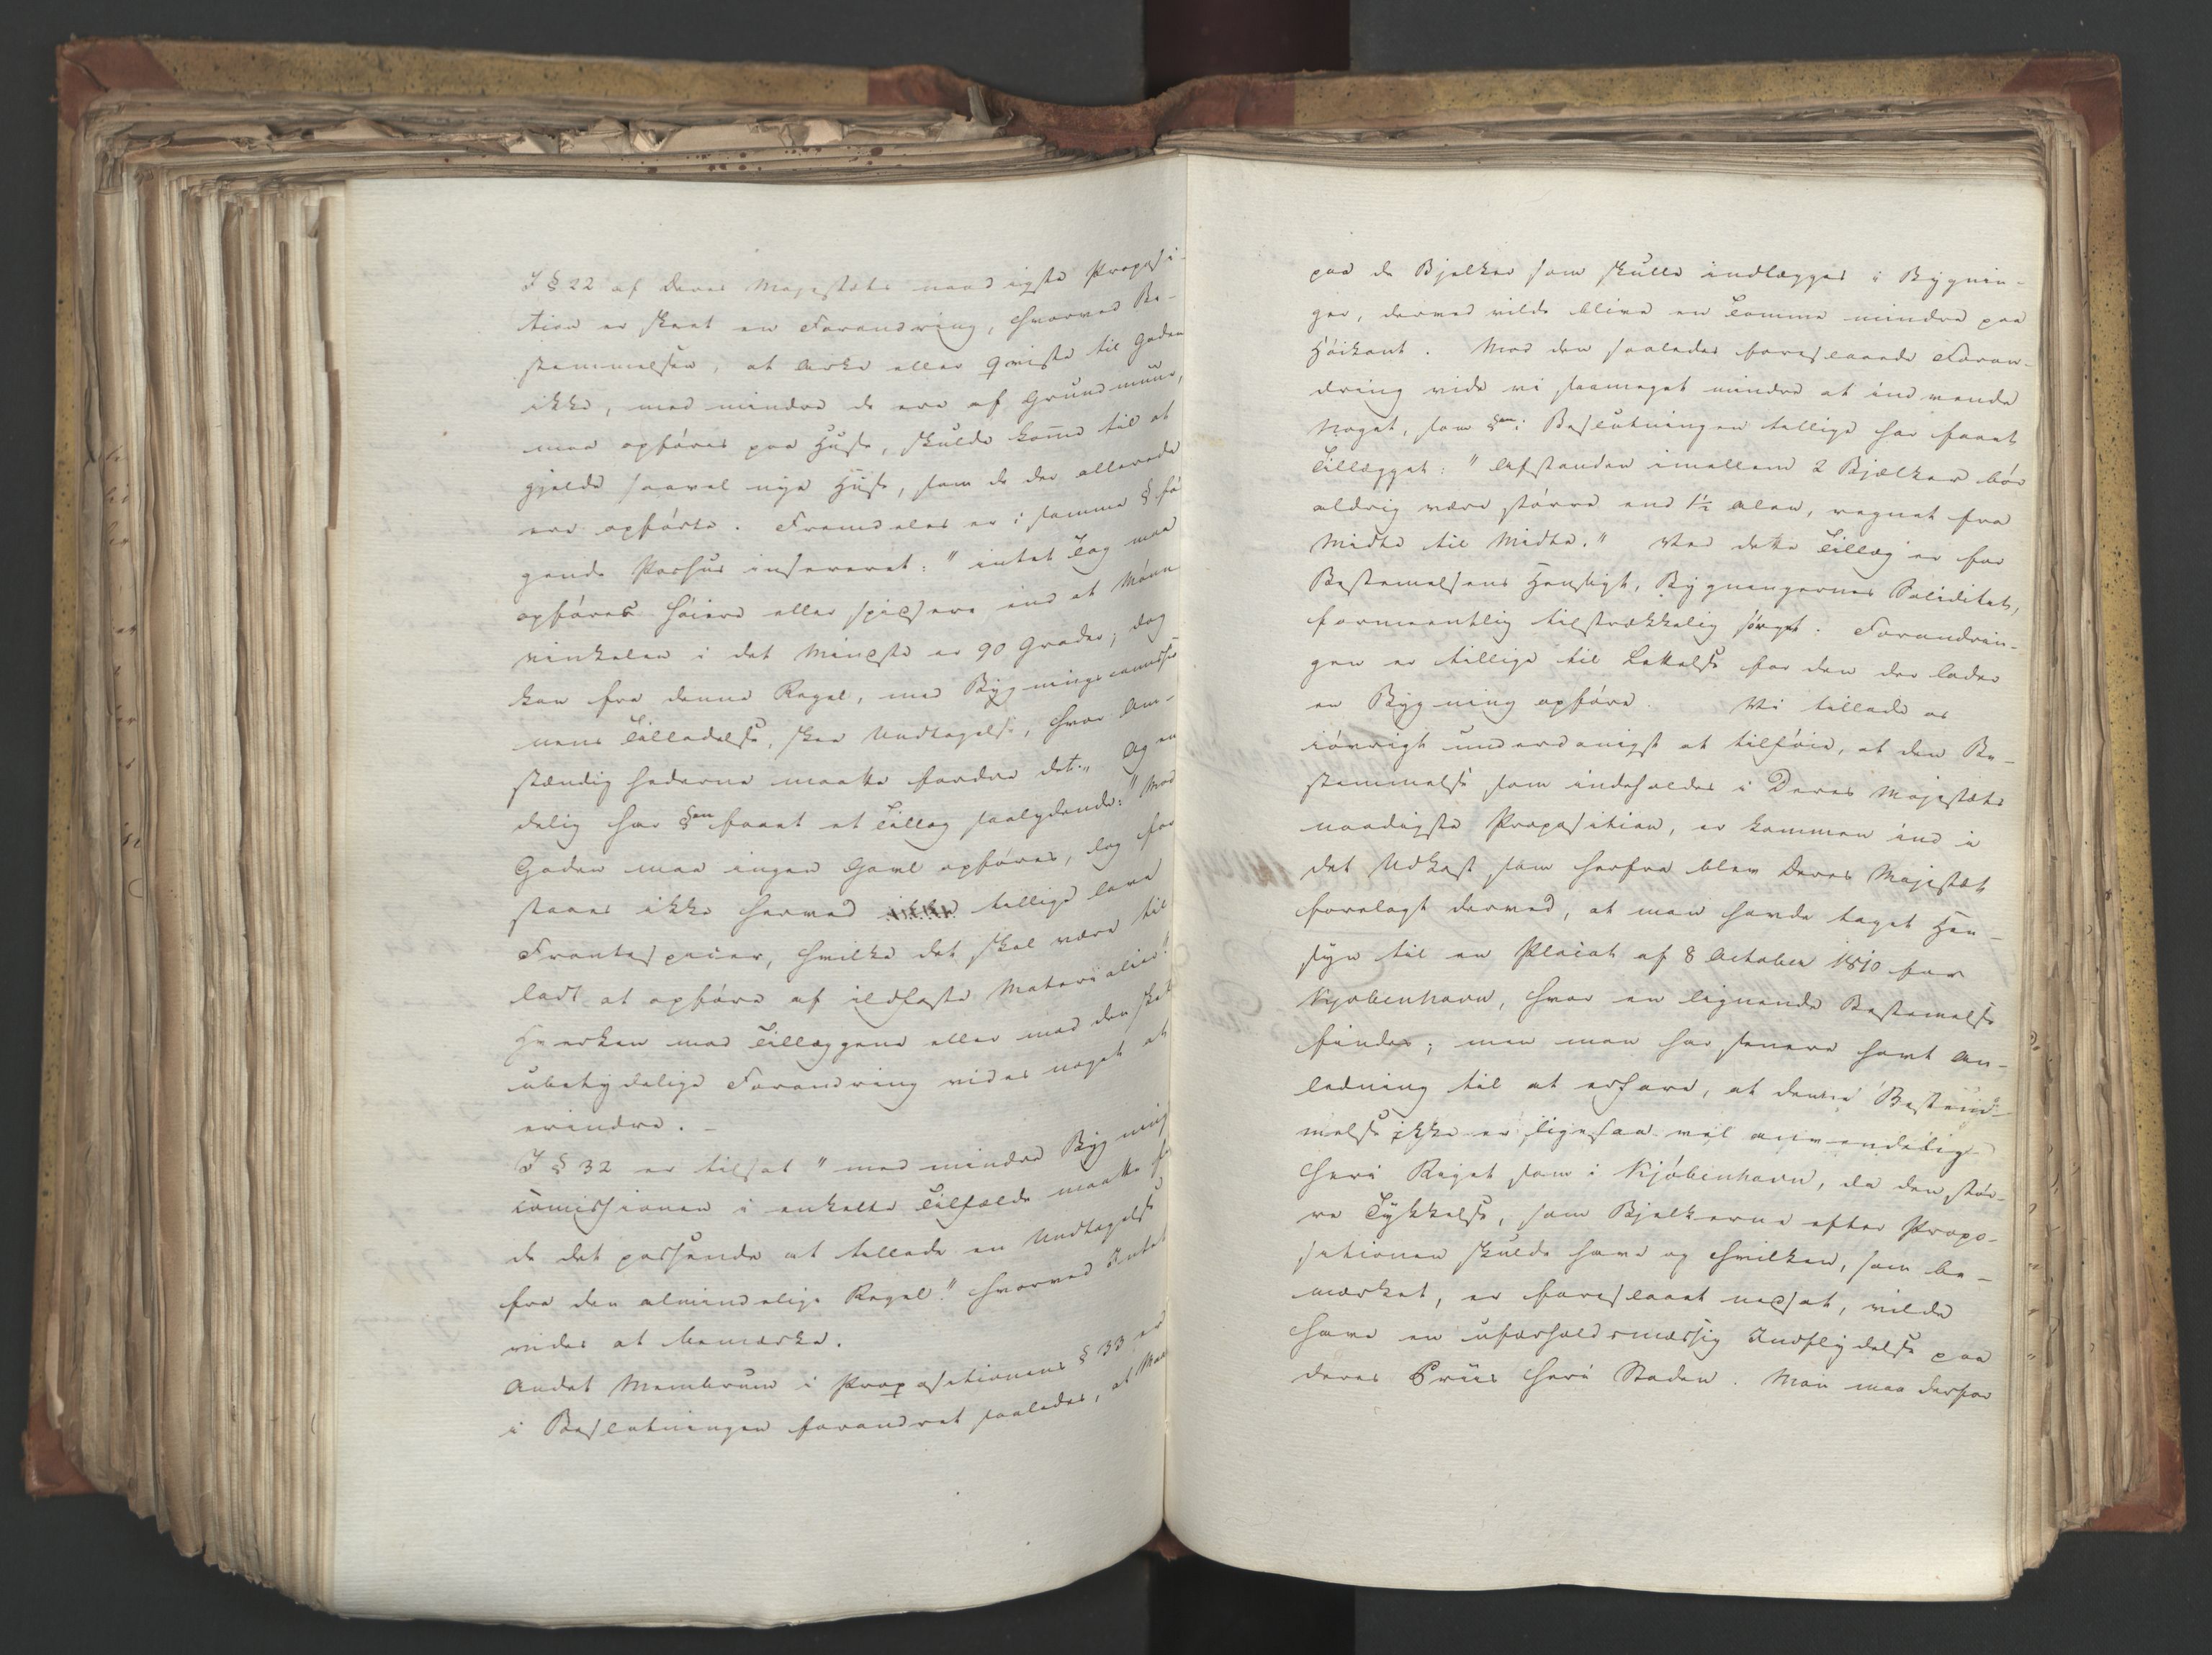 I § 22 af Deres Majestæts naadigste Proposi-
tion er skeet en Forandring, hvorved Be-
stemmelsen, at Arke eller Qviste til Gaden
ikke, med mindre de ere af Grundmuur,
maa opføres paa Huse, skulde kom̅e til at
gjelde saavel nye Huse, som de der allerede
ere opførte. Fremdeles er i samme § føl
gende Passus insereret: "intet Tag maa
opføres høiere eller spidsere end at Møn
vinkelen i det Mindste er 90 Grader; dog
kan fra denne Regel, med Bygningscommissio
nens Tilladelse, skee Undtagelse, hvor Om-
stændighederne maatte fordre det." Og en
delig har §en faaet et Tillæg saalydende: "Mod
Gaden maa ingen Gavl opføres, dog for
staaes ikke herved tillige lave
Frontespicer, hvilke det skal være til
ladt at opføre af ildfaste Materialier."
Hverken mod Tillæggene eller mod den skete
ubetydelige Forandring vides noget at
erindre. -
I § 32 er tilsat "med mindre Bygnings
comissionen i enkelte Tilfælde maatte fin
de det passende at tillade en Undtagelse
fra den almindelige Regel." hvorved Intet
vides at bemærke.
Andet Membrum i Propositionens § 33 er
i Beslutningen forandret saaledes, at Maalet
paa de Bjelker som skulle indlægges i Bygnin-
ger, derved vilde blive en Tomme mindre paa
Høikant. Mod den saaledes foreslaaede Foran-
dring vide vi saameget mindre at indvende
Noget, som §en i Beslutningen tillige har faaet
Tillægget: "Afstanden imellem 2 Bjælker bør
aldrig være større end 1½ Alen, regnet fra
Midte til Midte." Ved dette Tillæg er for
Bestemelsens Hensigt, Bygningernes Soliditet,
formeentlig tilstrækkelig sørget. Forandrin-
gen er tillige til Lettelse for den der lader
en Bygning opføre. Vi tillade os
iøvrigt underdanigst at tilføie, at den Be-
stemmelse som indeholdes i Deres Majestæts
naadigste Proposition, er kommen ind i
det Udkast som herfra blev Deres Majestæt
forelagt derved, at man havde taget Hen-
syn til en Placat af 8 October 1810 for
Kjøbenhavn, hvor en lignende Bestemelse
findes; men man har senere havt An-
ledning til at erfare, at denne Bestem-
melse ikke er ligesaa vel anvendelig
her i Riget som i Kjøbenhavn, da den stør-
re Tykkelse, som Bjelkerne efter Propo-
sitionen skulde have og hvilken, som be-
mærket, er foreslaaet nedsat, vilde
have en uforholdsmæssig Indflydelse paa
deres Priis her i Staden. Man maa derfor